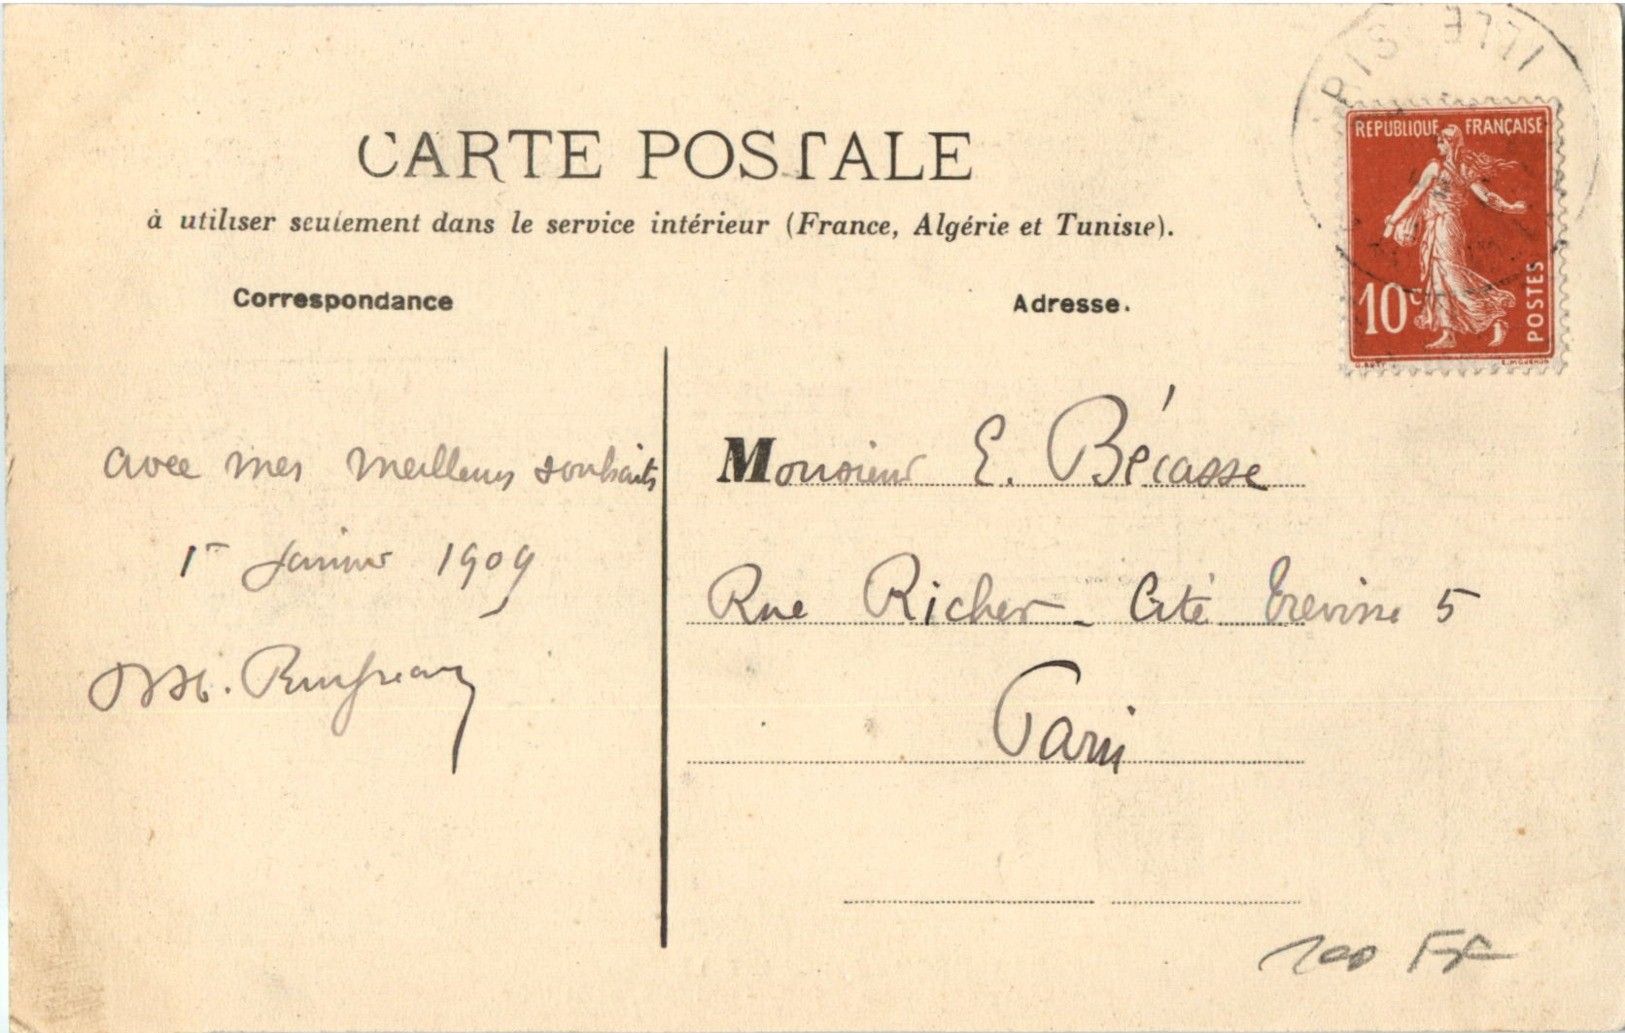 CARTE POSTALE
à utiliser seulement dans le service intérieur (France, Algérie et Tunisie).
Correspondance
Adresse.
RIS
ILLE
REPUBLIQUE FRANÇAISE
10c
POSTES
avec mes meilleurs souhaits
1r Janvier 1909
Monsieur E. Bécasse
Rue Richer - Cité Trevise 5
Paris
100 FF